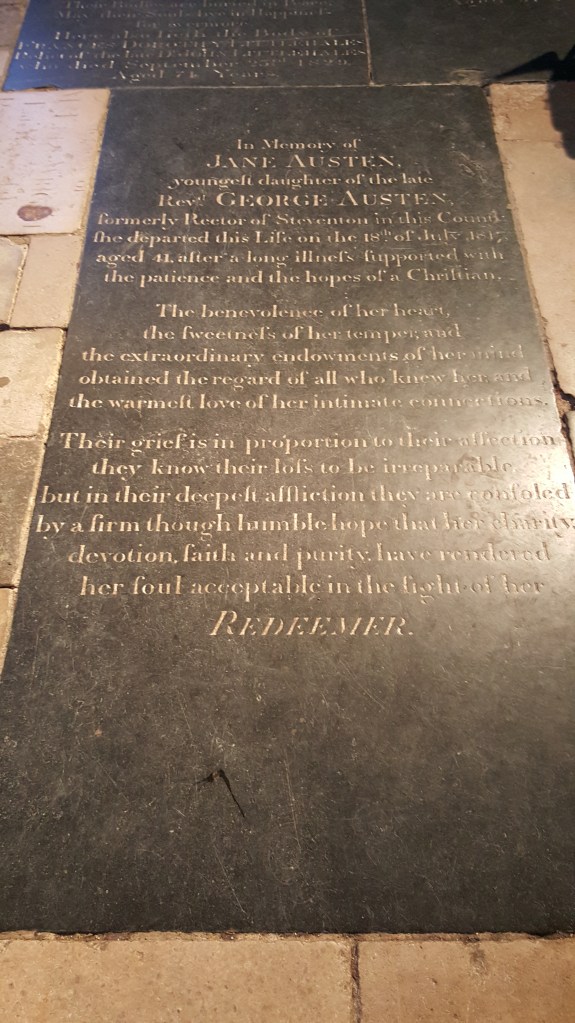 Their Bodies are buried in Peace,
May their Souls live in Happiness
Here also lieth the Body of
who died September 25th 1829.
Aged 74 Years.
In Memory of
JANE AUSTEN,
youngeſt daughter of the late
Revd. GEORGE AUSTEN,
formerly Rector of Steventon in this County
ſhe departed this Life on the 18th of July 1817,
aged 41, after a long illneſs ſupported with
the patience and the hopes of a Chriſtian.
The benevolence of her heart,
the ſweetneſs of her temper, and
the extraordinary endowments of her mind
obtained the regard of all who knew her, and
the warmeſt love of her intimate connections.
Their grief is in proportion to their affection
they know their loſs to be irreparable,
but in their deepeſt affliction they are conſoled
by a firm though humble hope that her charity,
devotion, faith and purity, have rendered
her ſoul acceptable in the ſight of her
REDEEMER.